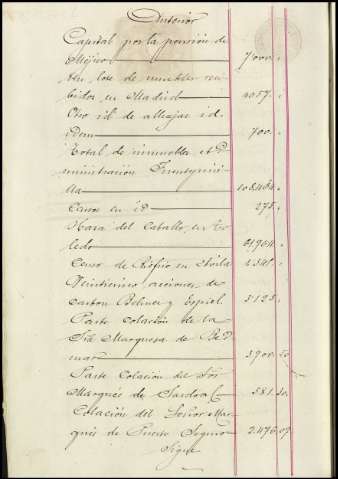 Anterior
Capital por la pensión de
Méjico 7000
Un lote de muebles reci
bidos en Madrid 4057.
Otro id. de alhajas id.
idem 700.
Total de inmuebles Ad
ministración Fuentiguini
lla 108464.
Censo en id 275.
Haza del Caballo, en To
ledo 01964.
Censo de Riofrio en Avila 2541.
Veinticinco acciones de
Carbon Belmez y Espiel 3125.
Parte colación de la
Sra Marquesa de Bed
mar 3900.50
Parte Colación del Sor
Marqués de Sardoal 581.50.
Colación del Señor Mar
qués de Puerto Seguro 2.476.09
Sigue